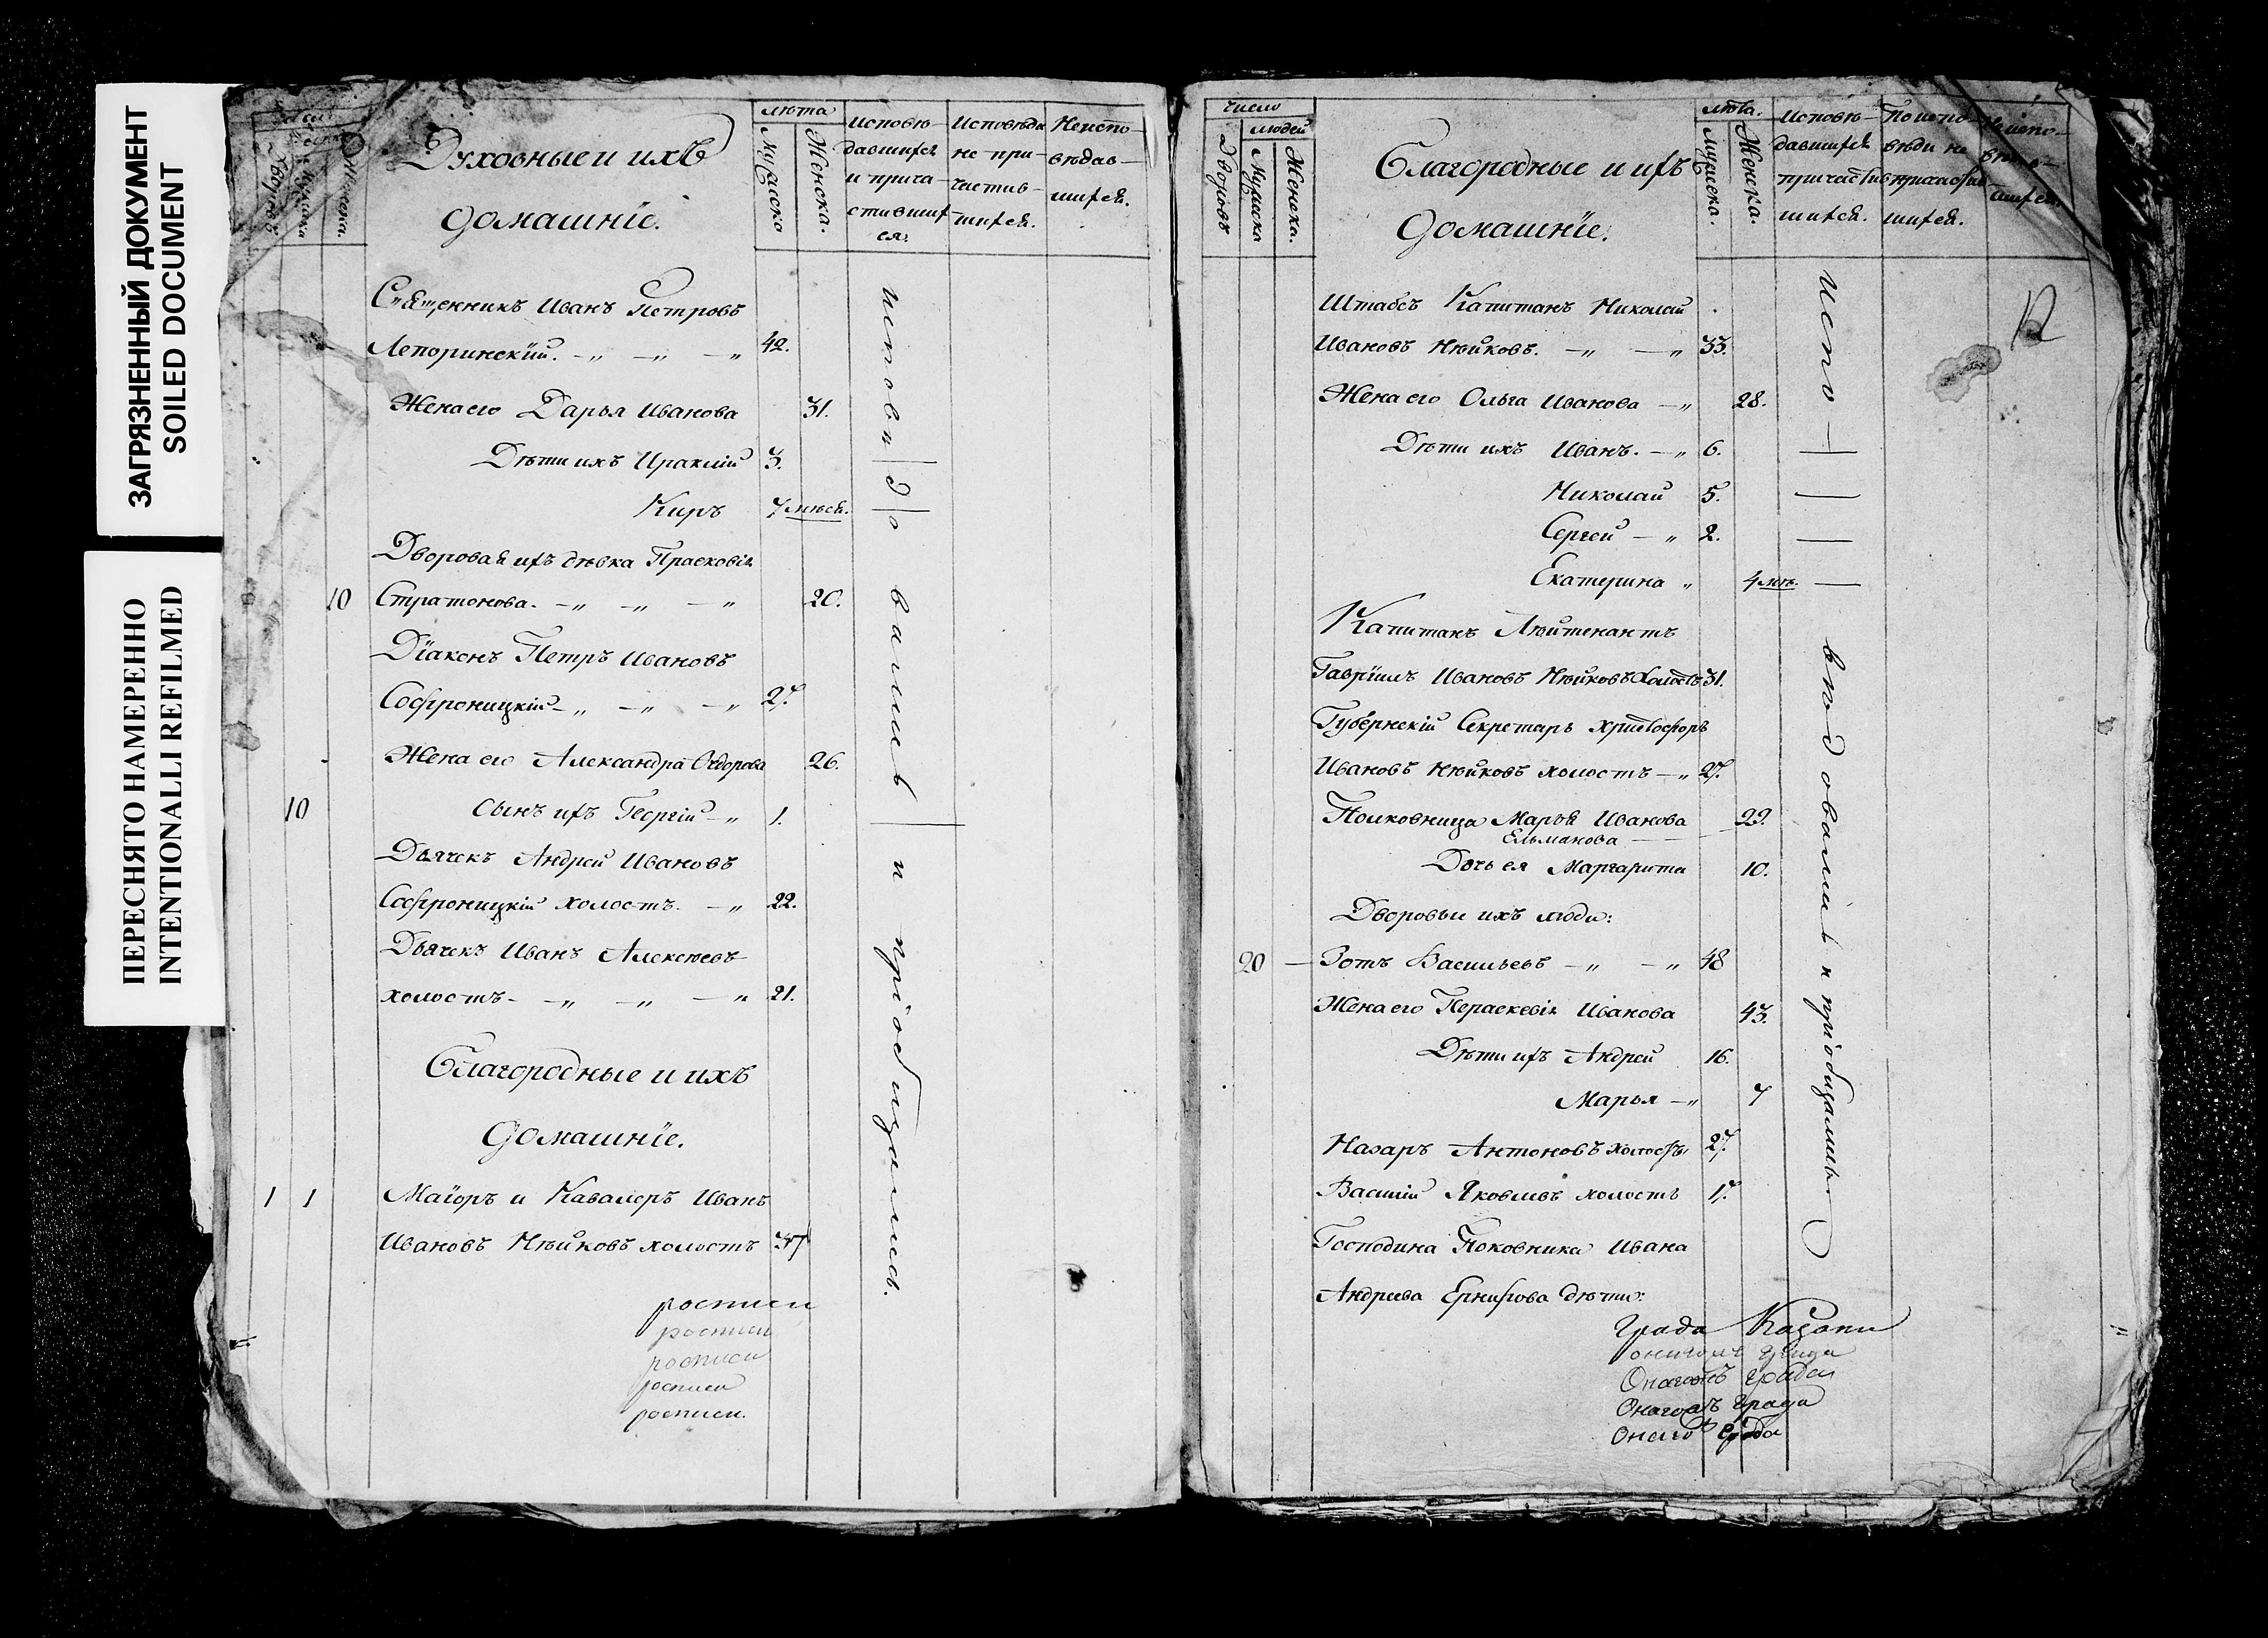 ЗАГРЯЗНЕННЫЙ ДОКУМЕНТ
SOILED DOCUMENT
ПЕРЕСНЯТО НАМЕРЕННО
INTENTIONALLI REFILMED
Духовные и ихъ
домашніе.
лѣта
Мужеска
Женска.
Исповѣ-
давшихся
и прича-
стивших-
ся.
Исповѣда
не при-
частив-
шихся.
Неиспо-
вѣдав-
шихся.
Священникъ Иванъ Петровъ
Лепоринскїй. 42.
Жена его Дарья Иванова 31.
Дѣти ихъ Ираклій 3.
Киръ 7 мѣся.
Дворовая ихъ дѣвка Прасковія
10 Стратонова. 20.
Дїаконъ Петръ Ивановъ
Софроницкій 27.
Жена его Александра Ѳедорова 26.
10 Сынъ ихъ Георгій 1.
Дьячекъ Андрей Ивановъ
Софроницкій холостъ. 22.
Дьячекъ Иванъ Алексѣевъ
холостъ 21.
Благородные и ихъ
домашнїе.
1 1 Маїоръ и Кавалеръ Иванъ
Ивановъ Нѣйковъ холостъ 37
исповѣдовались и пріобщались.
росписи
росписи
росписи
росписи
росписи.
число
людей
Дворовъ
Мужеска
Женска.
Благородные и ихъ
домашнїе.
лѣта.
Мужеска.
Женска.
Исповѣ-
давшихся
причастив
шихся.
По испо-
вѣди не
причастив
шихся.
12
Штабсъ Капитанъ Николай
Ивановъ Нѣйковъ. 33.
Жена его Ольга Иванова 28.
Дѣти ихъ Иванъ. 6.
Николай 5.
Сергей 2.
Екатерина 4 мѣ.
Капитанъ Лѣйтенантъ
Гаврїилъ Ивановъ Нѣйковъ холостъ 31.
Губернскїй Секретарь Христофоръ
Ивановъ Нѣйковъ холостъ 27.
Полковница Марья Иванова 29.
Ельманова
Дочь ея Маргарита 10.
Дворовыи ихъ люди:
20 Зотъ Васильевъ 48
Жена его Параскевія Иванова 43.
Дѣти ихъ Андрей 16.
Марья 7
Назаръ Антоновъ холостъ 27.
Василій Яковлевъ холостъ 17.
Господина Поковника Ивана
Андреева дѣти:
исповѣдовались и пріобщались.
Града Казани
Онаго града